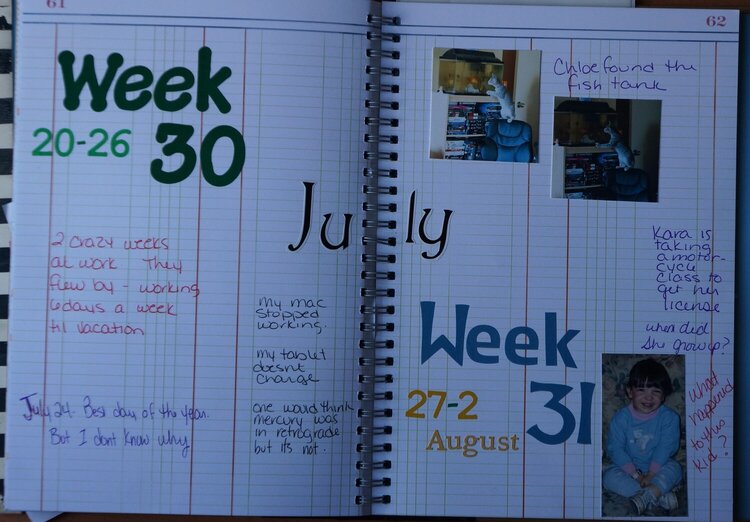 61
Week
20-26 30
July
2 crazy weeks
at work They
flew by - working
6 days a week
til vacation
my mac
stopped
working.
my tablet
doesnt
charge
one would think
mercury was
in retrograde
but its not.
July 24. Best day of the year.
But I dont know why
62
Chloe found the
fish tank
Kara is
taking
a motor-
cycle
class to
get her
license
when did
she grow up?
Week
27-2 31
August
What
happened
to this
kid?